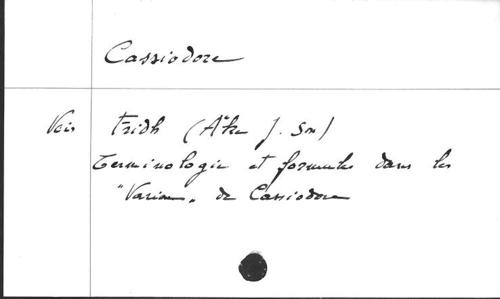 Cassiodore
Voir Fridh (Åke J. son)
Terminologie et formules dans les
"Variae" de Cassiodore